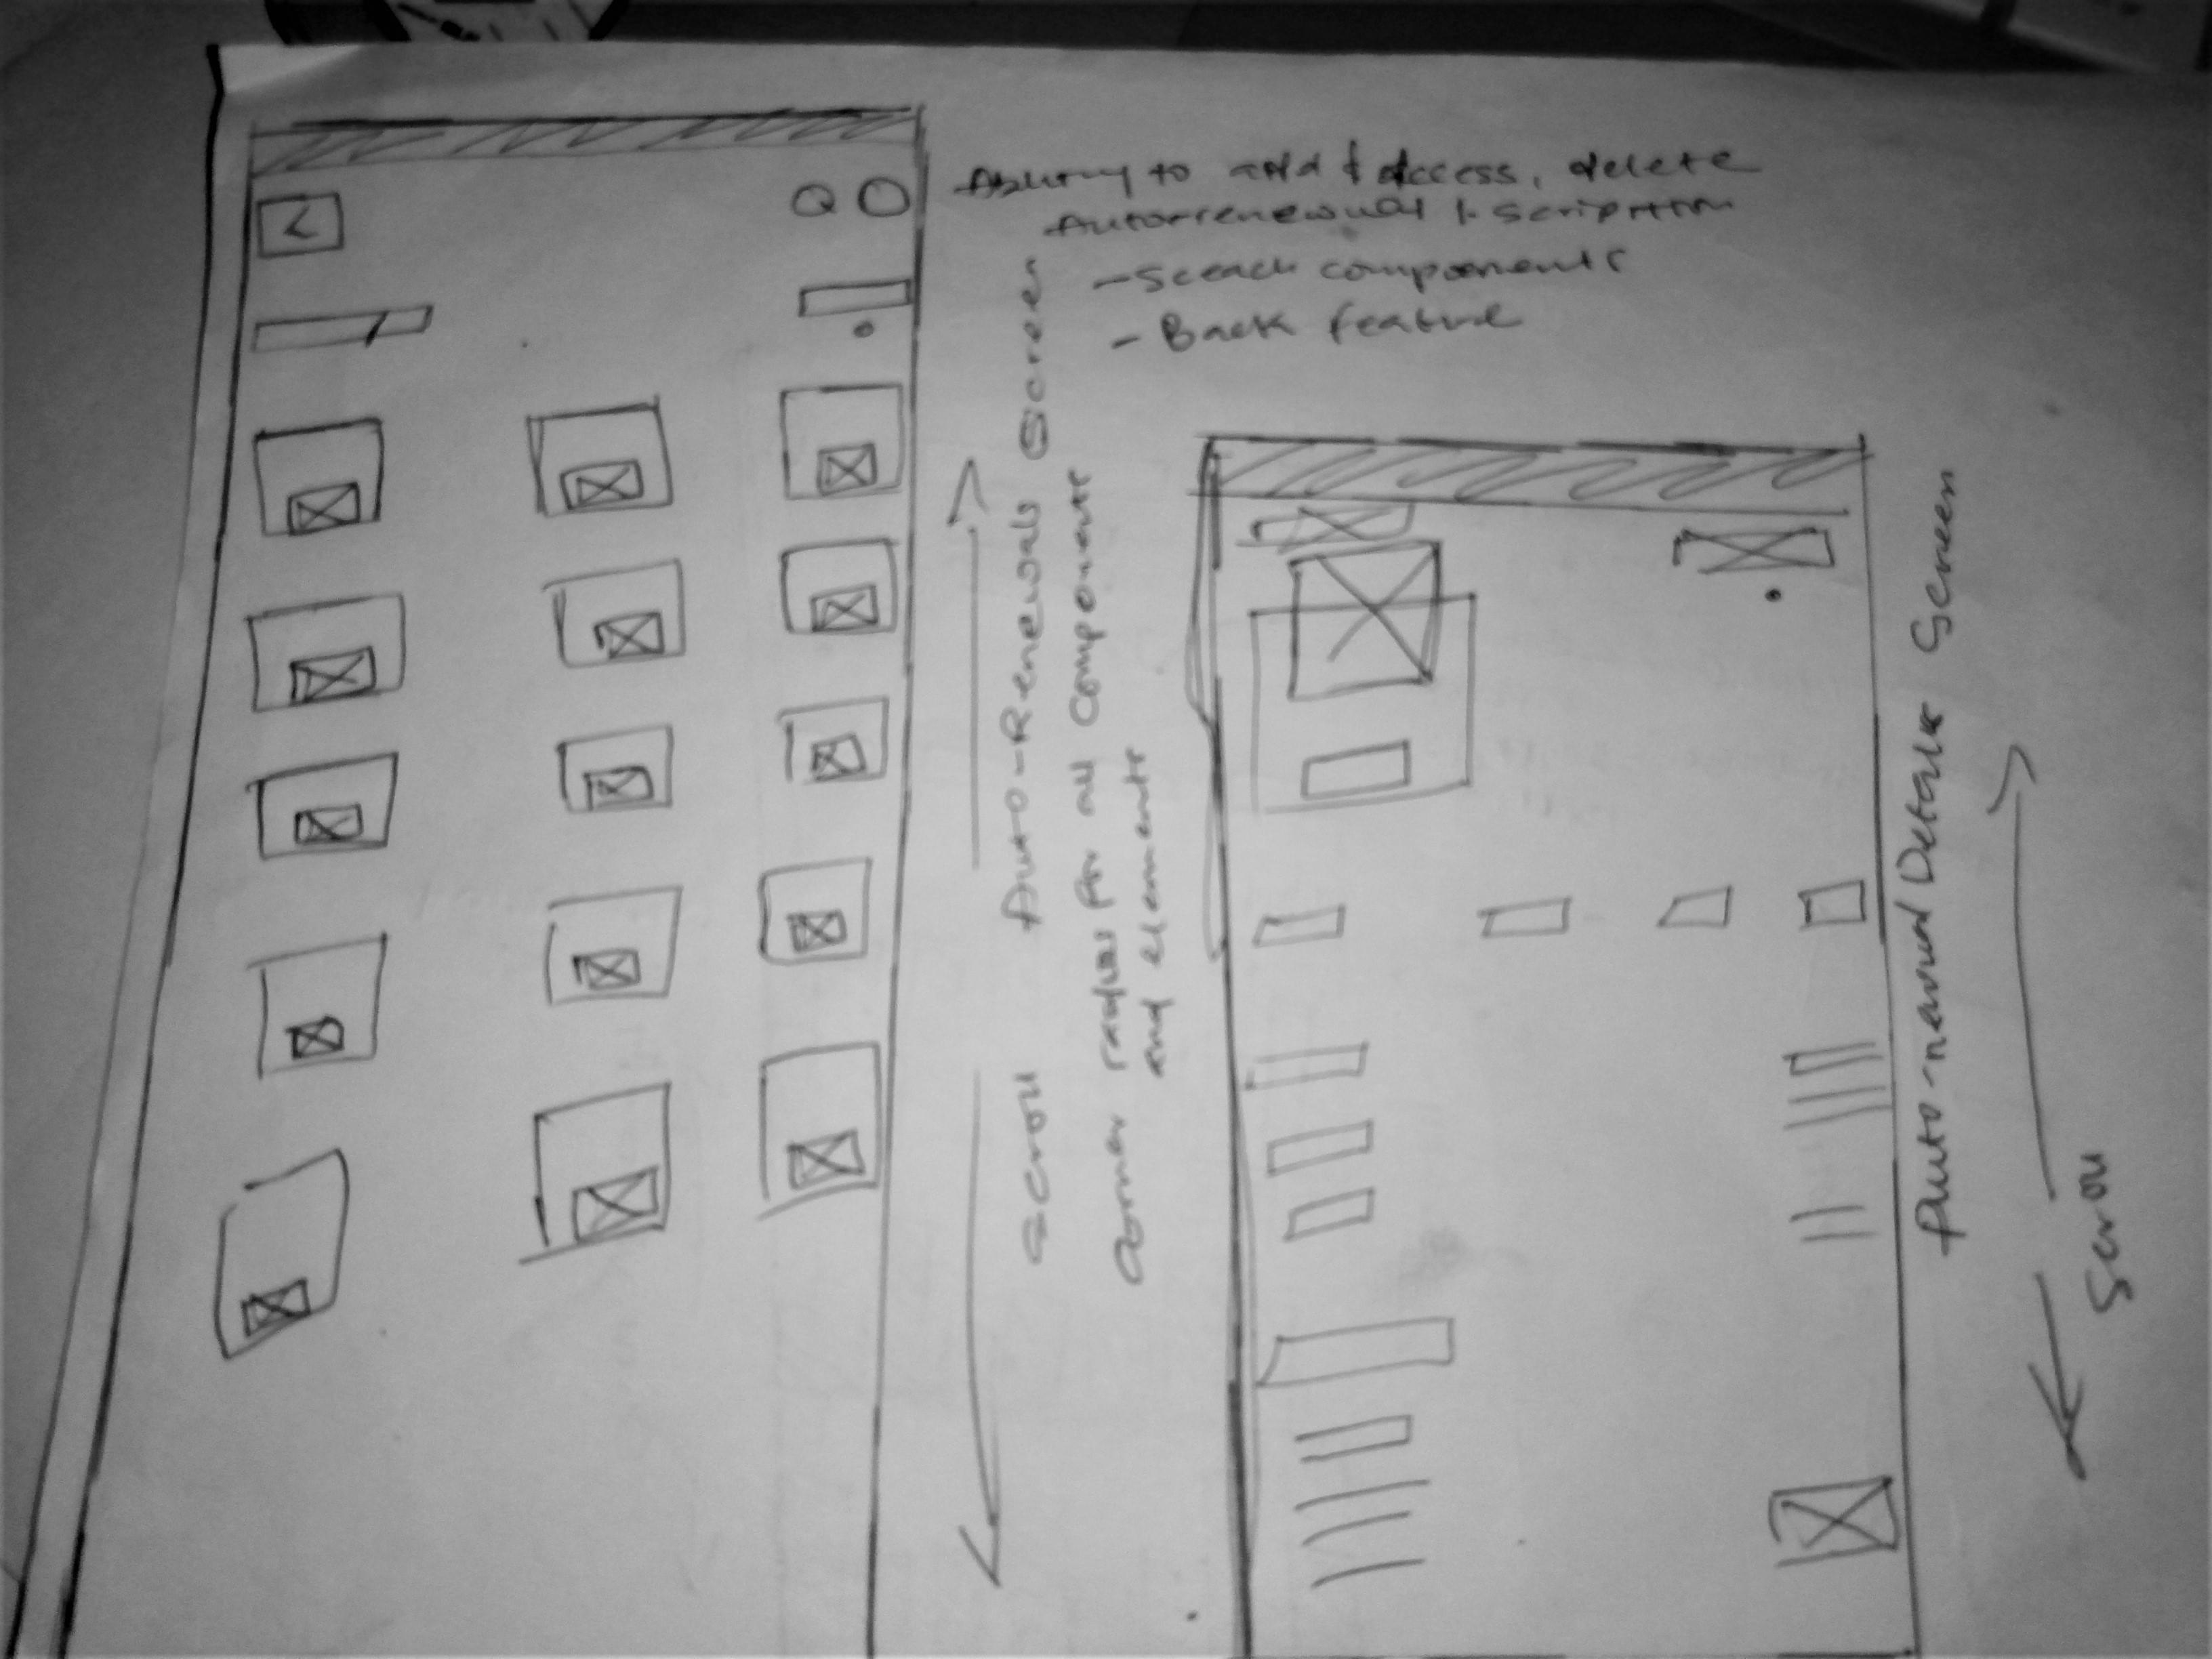 Ability to add & access, delete
- Seach components
- Back feature
Auto-Renewals Screen
Scroll
Corner radius for all components
and elements
Auto-newal Details Screen
Scroll